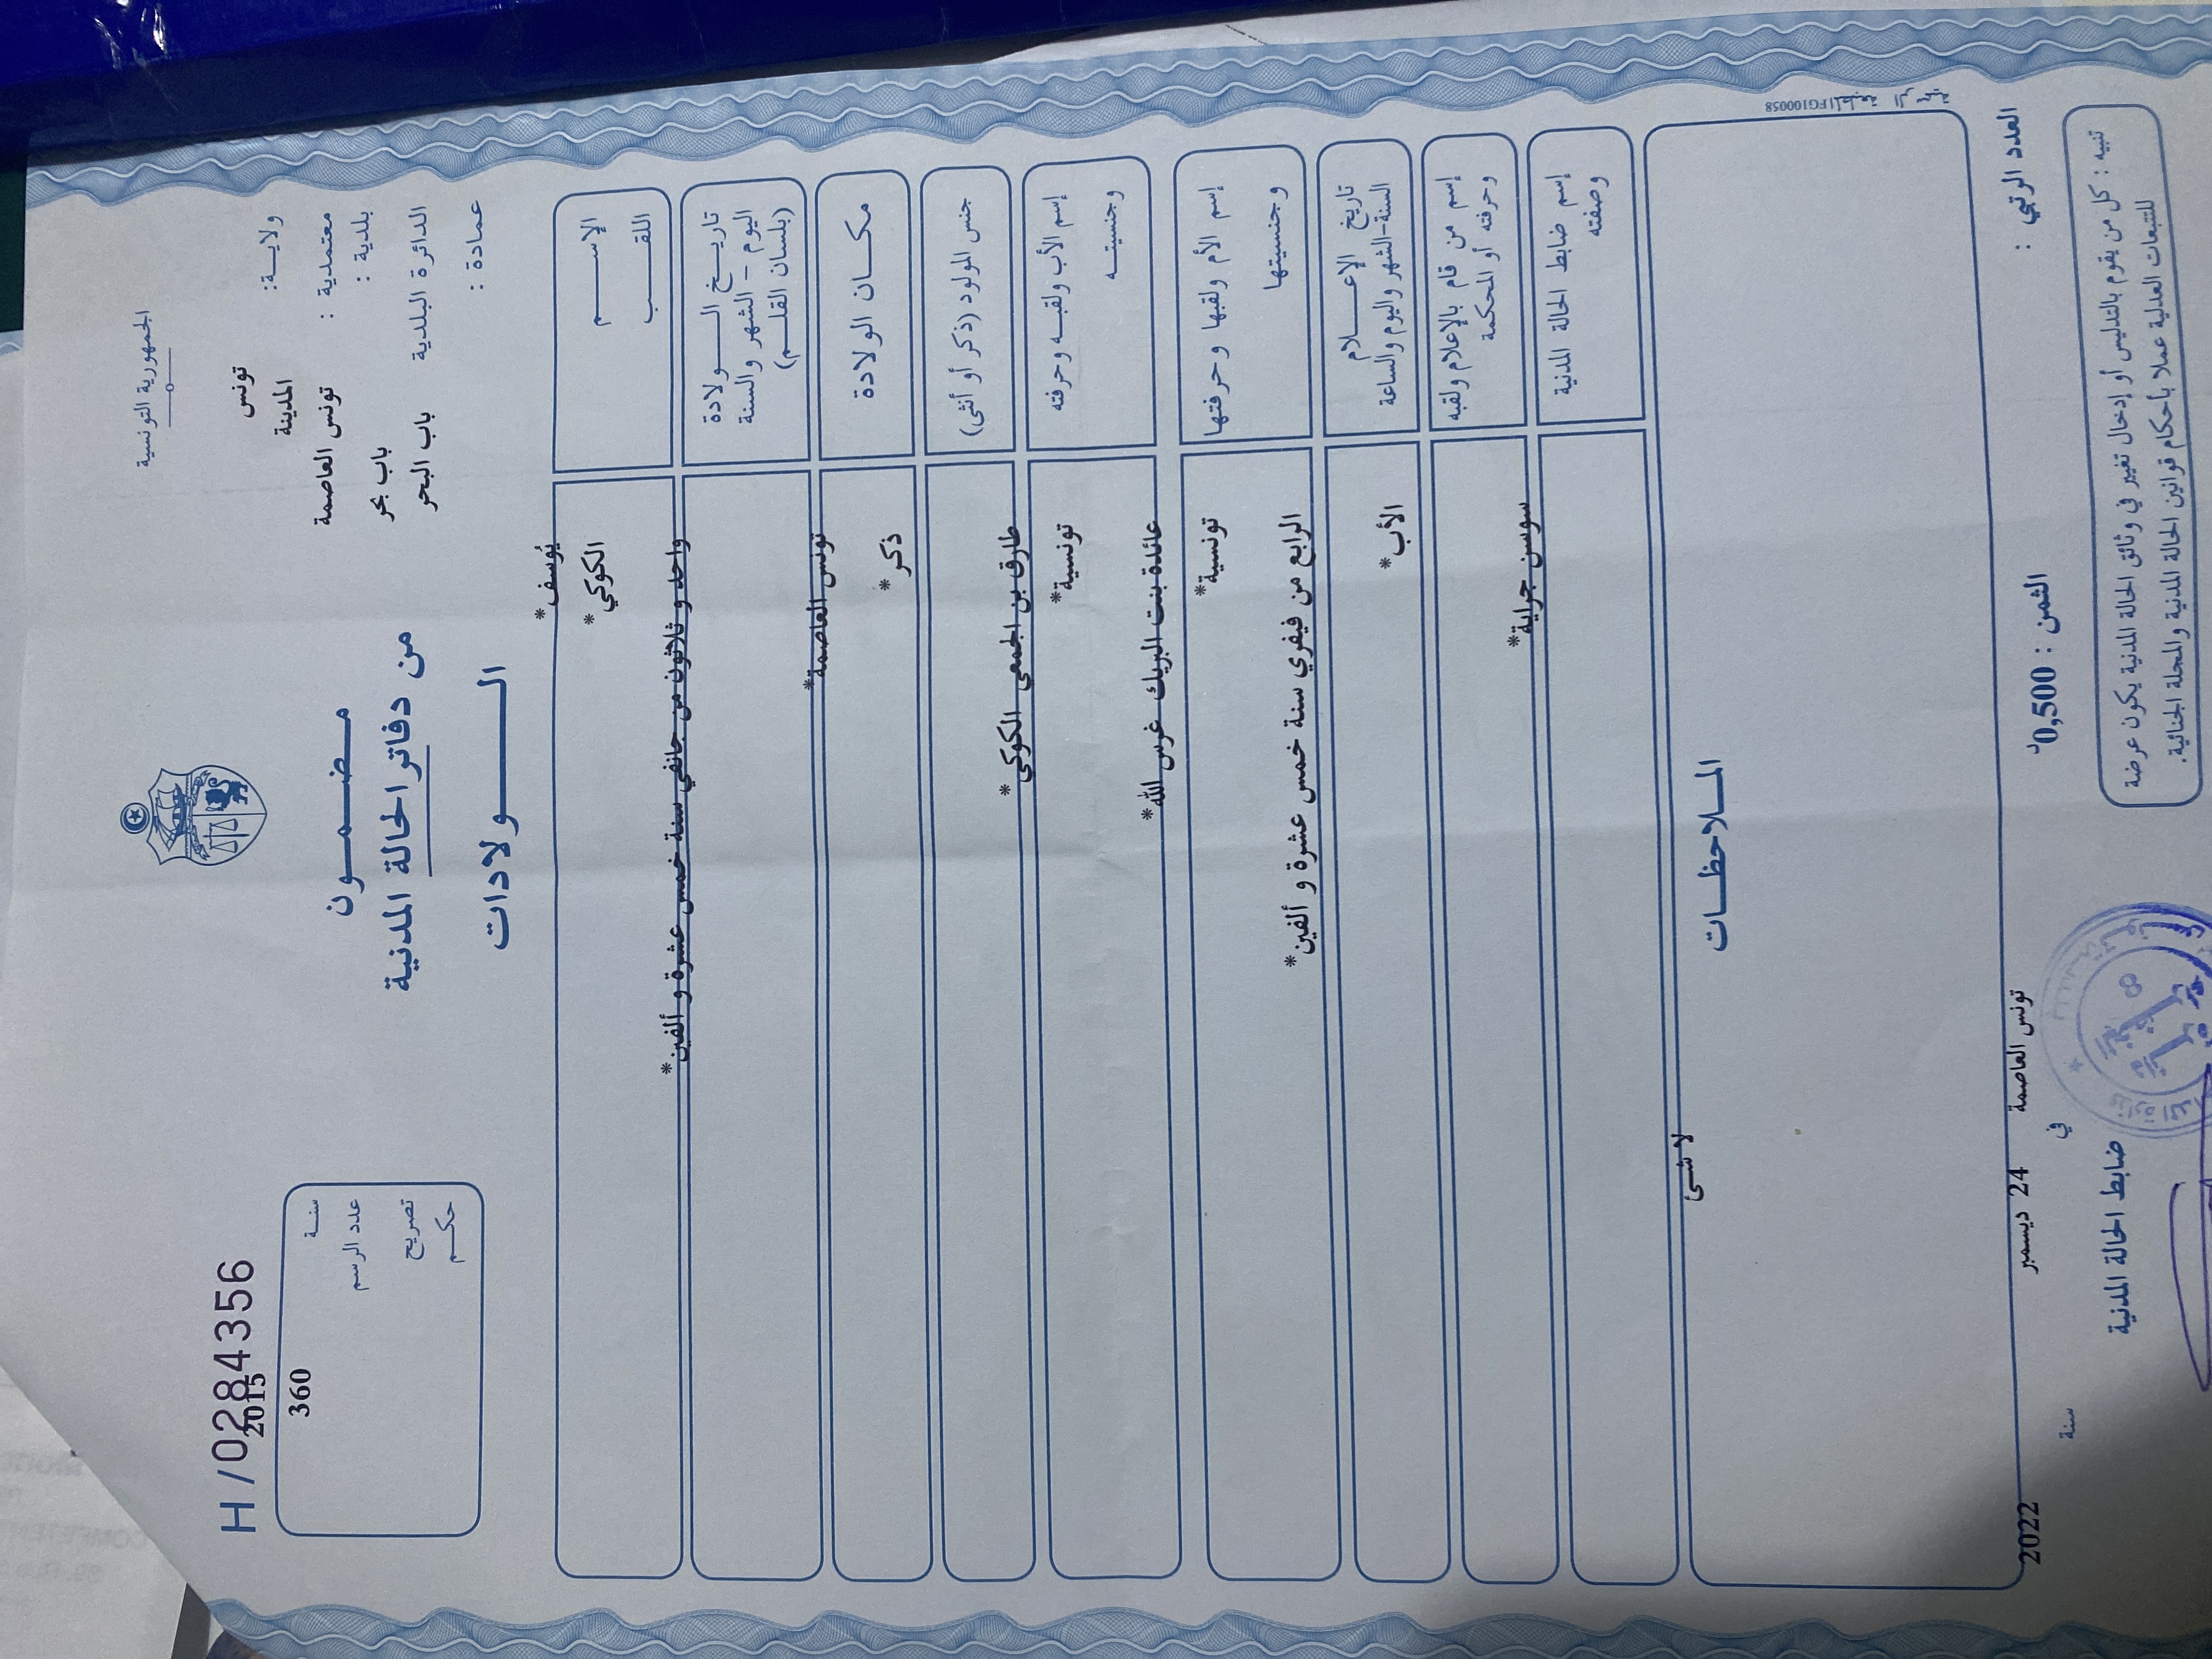 الجمهورية التونسية
H / 0284356
ولايـــة: تونس
معتمدية : المدينة
بلدية : تونس العاصمة
الدائرة البلدية باب بحر
عمادة : باب البحر
مـضـمـــون
من دفاتر الحالة المدنية
الــــولادات
سنــة 2015
عدد الرسم 360
تصريح
حكــم
الإســـــم يُوسف*
اللقــــب الكوكي*
تاريــخ الــــولادة واحد و ثلاثون من جانفي سنة خمس عشرة و ألفين*
اليوم - الشهر والسنة
(بلسان القلـــم)
مكــان الولادة تونس العاصمة*
جنس المولود (ذكر أو أنثى) ذكر*
إسم الأب ولقبـه وحرفته طارق بن الجمعي الكوكي*
وجنسيتــه تونسية*
إسم الأم ولقبها وحرفتها عائدة بنت البريك غرس الله*
وجنسيتها تونسية*
تاريخ الإعــــلام الرابع من فيفري سنة خمس عشرة و ألفين*
السنة-الشهر واليوم والساعة
إسم من قام بالإعلام ولقبه الأب*
وحرفته أو المحكمة
إسم ضابط الحالة المدنية سوسن جراية*
وصفته
المــلاحظــات
لا شئ
FG100058 المطبعة الرسمية
العدد الرتبي :
الثمن : 0,500د
تونس العاصمة في 24 ديسمبر سنة 2022
ضابط الحالة المدنية
تنبيه : كل من يقوم بالتدليس أو إدخال تغيير في وثائق الحالة المدنية يكون عرضة
للتتبعات العدلية عملا بأحكام قوانين الحالة المدنية والمجلة الجنائية.
8